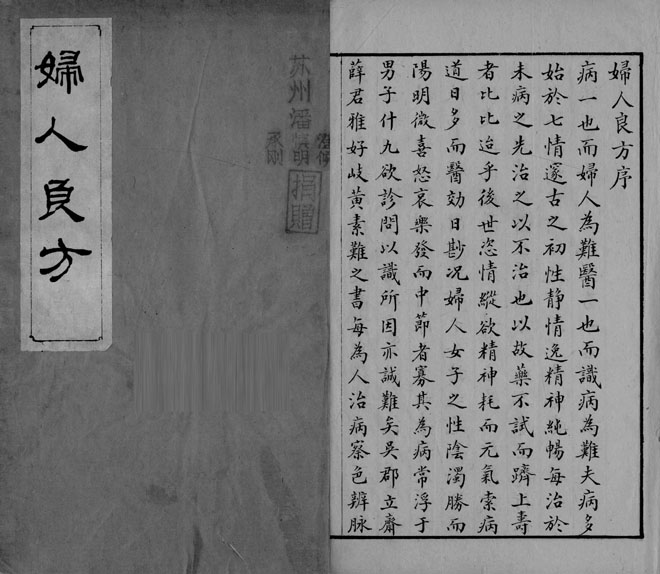 婦人良方
苏州潘
捐贈
婦人良方序
病一也而婦人為難醫一也而識病為難夫病多
始於七情邃古之初性静情逸精神純暢每治於
未病之先治之以不治也以故藥不試而躋上壽
者比比迨乎後世恣情縱欲精神耗而元氣索病
道日多而醫効日尠况婦人女子之性陰濁勝而
陽明微喜怒哀樂發而中節者寡其為病常浮于
男子什九欲診問以識所因亦誠難矣吳郡立齋
薛君雅好岐黃素難之書每為人治病察色辨脉